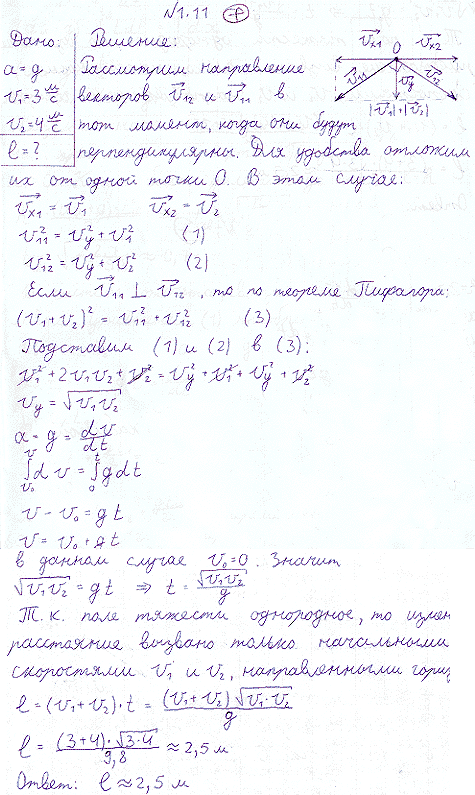 N1.11 +
Дано: Решение:
a = g Рассмотрим направление
v₁ = 3 м/с векторов v⃗₁₂ и v⃗₁₁ в
v₂ = 4 м/с тот момент, когда они будут
l = ? перпендикулярны. Для удобства отложим
их от одной точки O. В этом случае:
v⃗ₓ₁ O v⃗ₓ₂
v⃗₁₁ v⃗y
|v⃗₁|+|v⃗₂|
v⃗ₓ₁ = v⃗₁ v⃗ₓ₂ = v⃗₂
v₁₁² = vy² + v₁² (1)
v₁₂² = vy² + v₂² (2)
Если v⃗₁₁ ⊥ v⃗₁₂, то по теореме Пифагора:
(v₁ + v₂)² = v₁₁² + v₁₂² (3)
Подставим (1) и (2) в (3):
v₁² + 2v₁v₂ + v₂² = vy² + v₁² + vy² + v₂²
vy = √(v₁v₂)
a = g = dv/dt
∫ᵥ₀ᵛ dv = ∫₀ᵗ g dt
v - v₀ = gt
v = v₀ + gt
в данном случае v₀ = 0. Значит
√(v₁v₂) = gt ⇒ t = √(v₁v₂)/g
Т.к. поле тяжести однородное, то измен
расстояние вызвано только начальными
скоростями v₁ и v₂, направленными гориз
l = (v₁ + v₂)·t = (v₁ + v₂)√(v₁·v₂)/g
l = (3+4)·√(3·4)/9,8 ≈ 2,5 м
Ответ: l ≈ 2,5 м